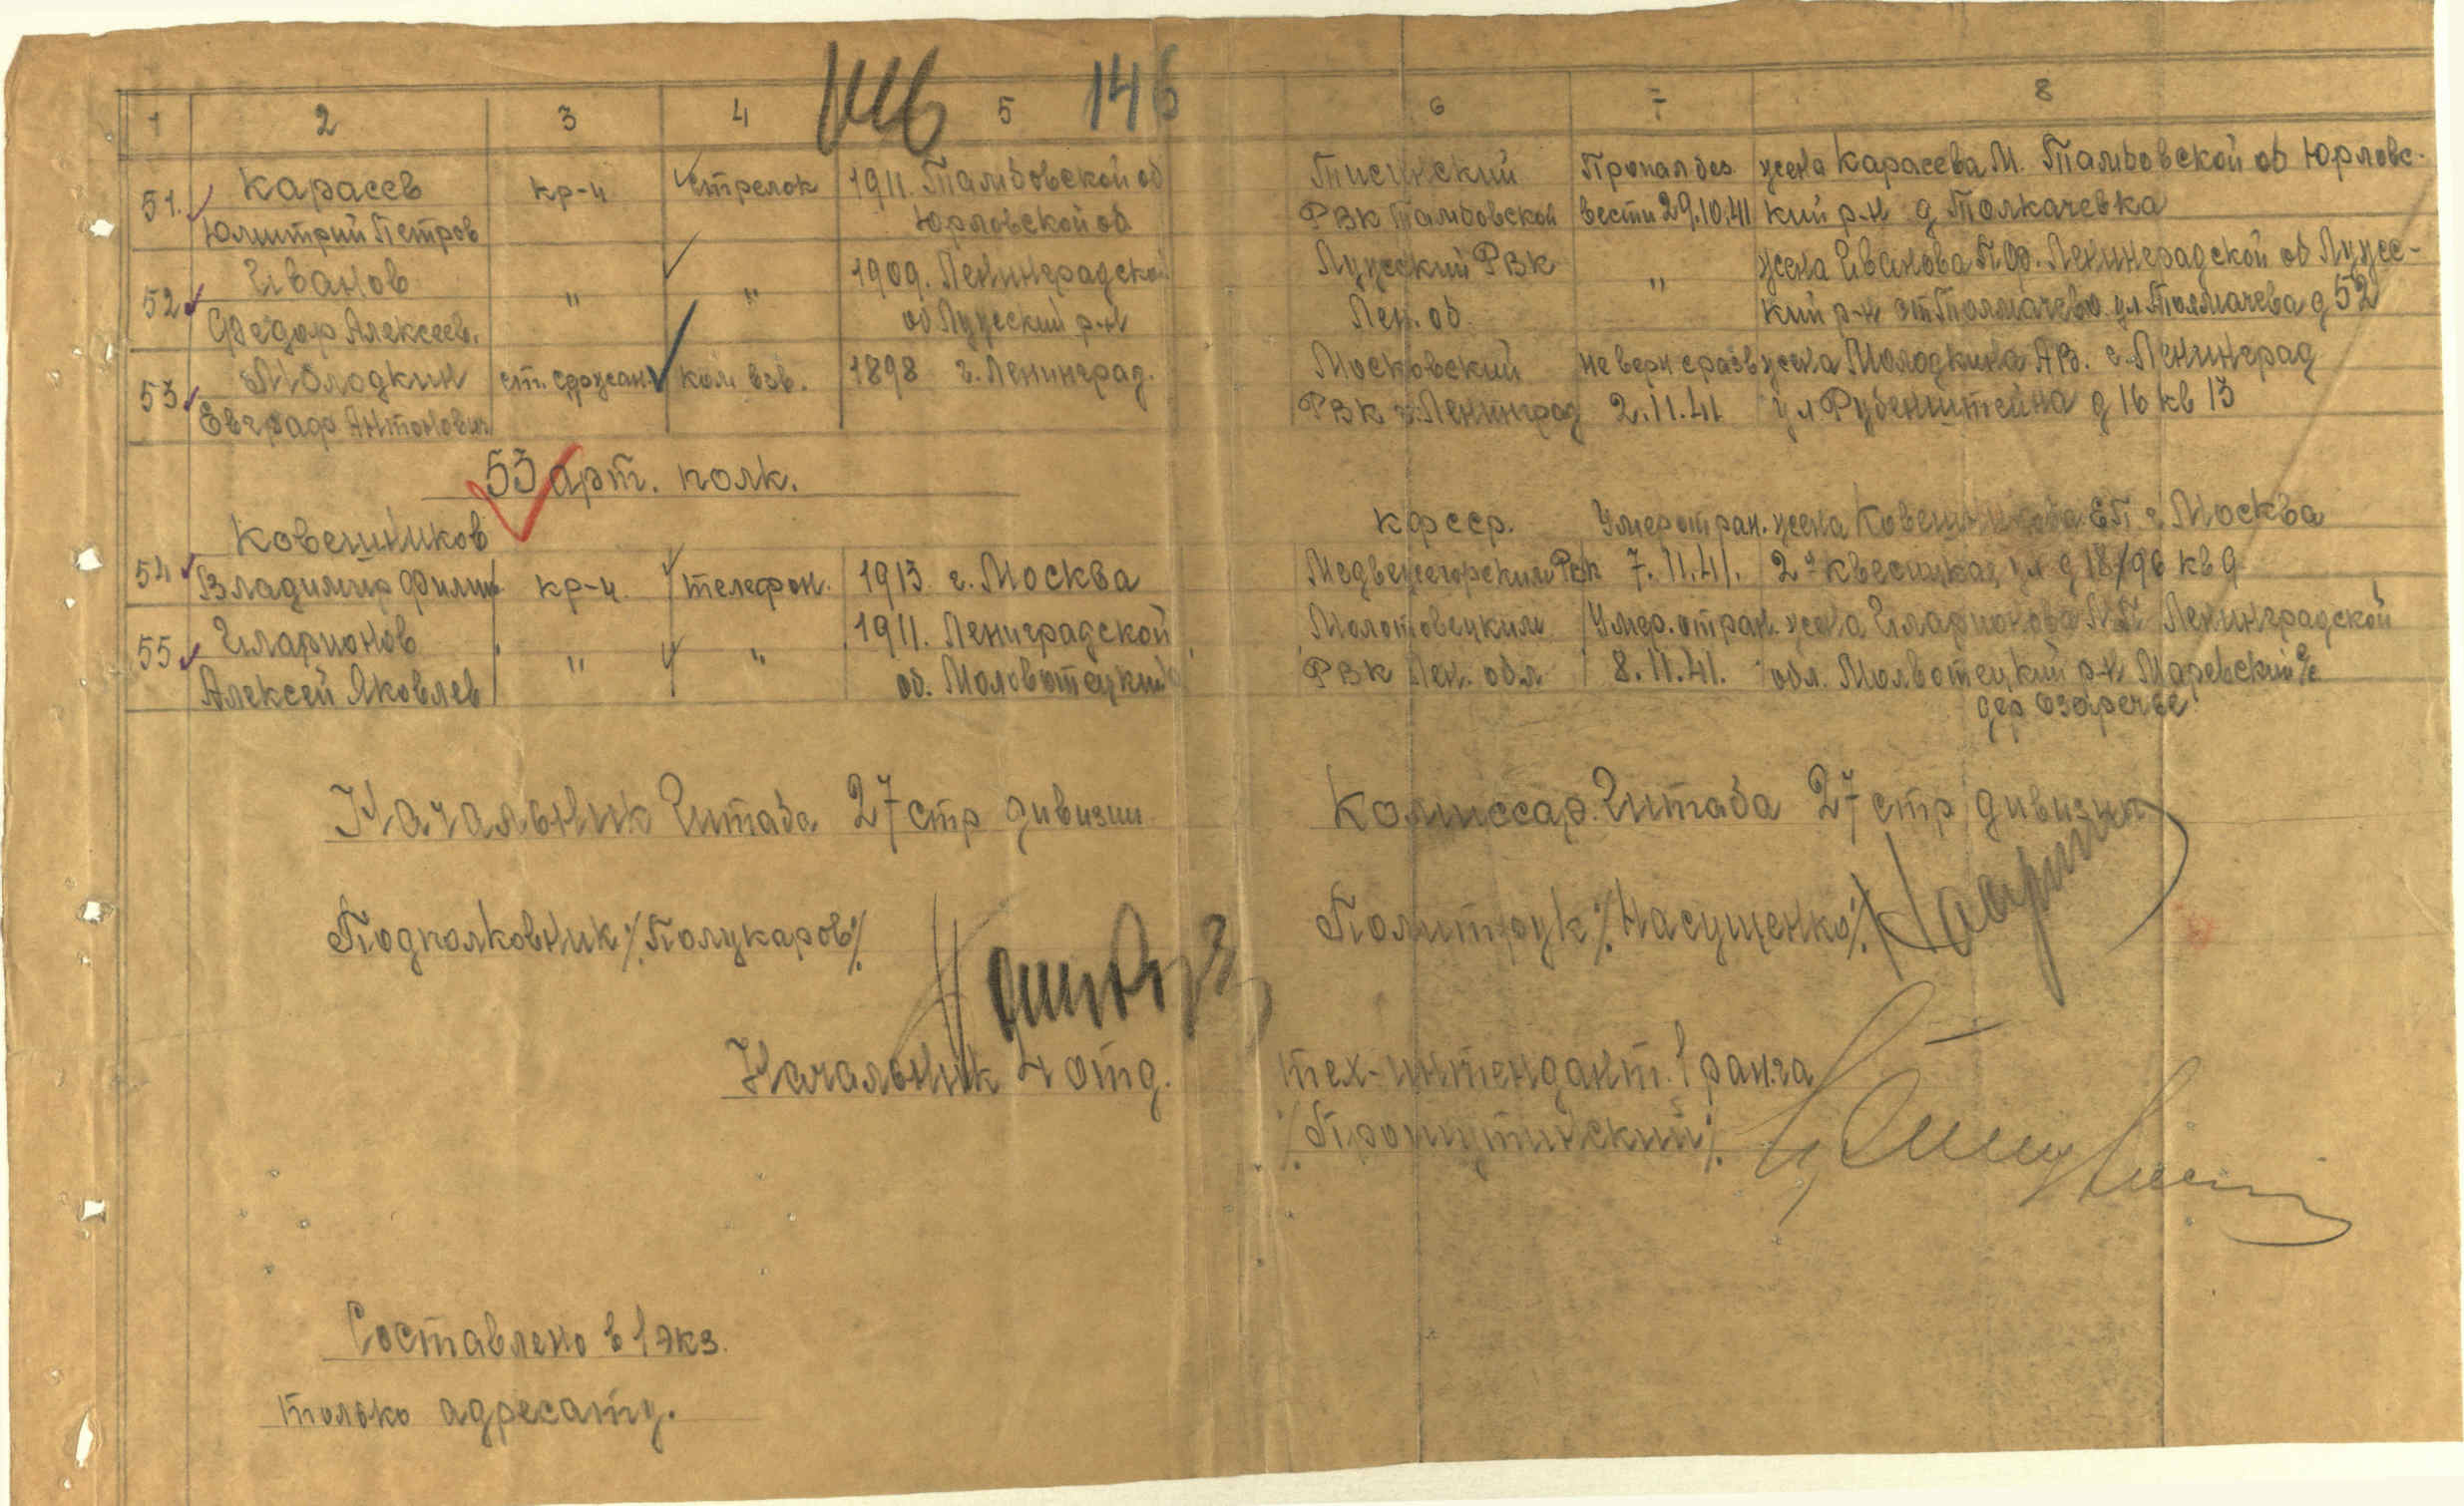 146 146
1 2 3 4 5 6 7 8
51. Карасев кр-ц стрелок 1911. Тамбовской об РВК Тамбовской Пропал без вести 29.10.41 жена Карасева М. Тамбовской об Юрловс-
Дмитрий Петров Юрловской об кий р-н д Толкачевка
52 Иванов " " 1909. Ленинградской Лужский РВК " жена Иванова Ленинградской об Лужс-
Федор Алексеев. об Лужский р-н Лен. об. кий р-н ст Толмачево ул Толмачева д 52
53 Молодкин ст. сержан. ком взв. 1898 г. Ленинград. Московский не верн с разв жена Молодкина АВ. г. Ленинград
Евграф Антонович РВК г. Ленинград 2.11.41 ул Рубенштейна д 16 кв 13
53 арт. полк.
Ковешников КФССР. Умер от ран. жена Ковешникова ЕП г Москва
54 Владимир Филип кр-ц. телефон. 1913 г. Москва Медвежегорским РВК 7.11.41. ул д 18/96 кв 9
55 Иларионов " " 1911. Лениградской Молотовецким Умер. от ран. жена Иларионова Ленинградской
Алексей Яковлев об. Моловотецкий РВК Лен. обл 8.11.41. обл. Молвотецкий р-н Маревский с/с
дер Озаречье
Начальник Штаба 27 стр дивизии Комиссар. Штаба 27 стр дивизии
Подполковник /Полукаров/. Политрук /Насущенко/.
Начальник 4 отд. тех-интендант. 1 ранга
Составлено в 1 экз.
только адресату.